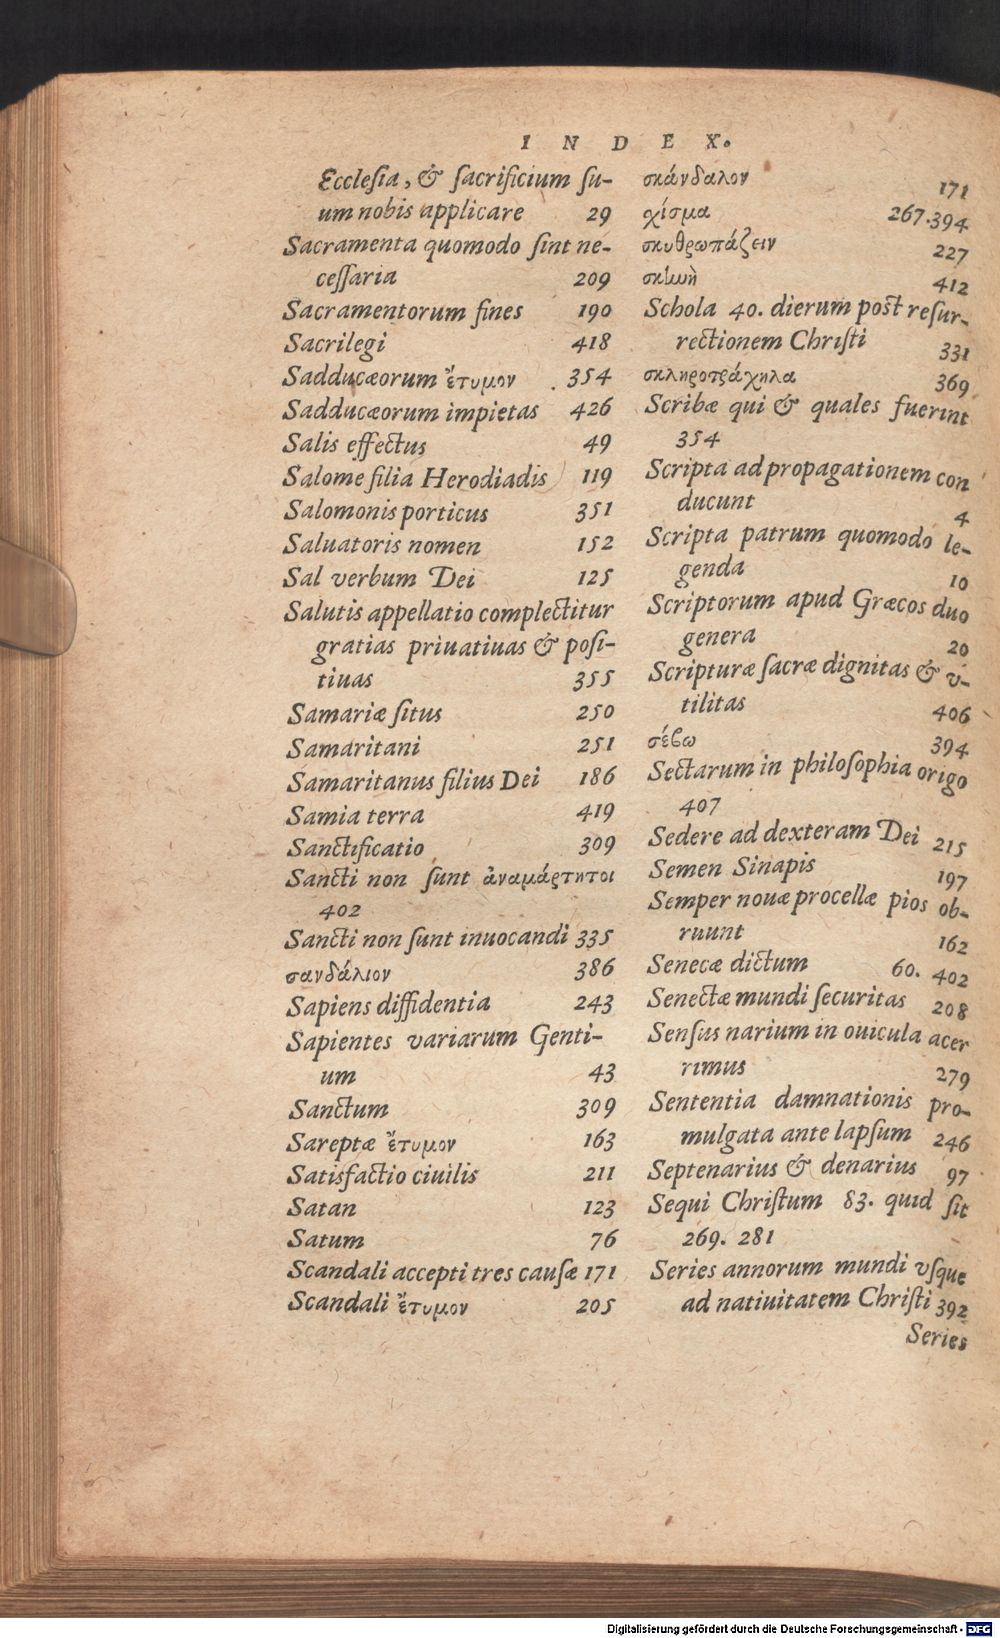 INDEX.
Ecclesia, & sacrificium su-
um nobis applicare 29
Sacramenta quomodo sint ne-
cessaria 209
Sacramentorum fines 190
Sacrilegi 418
Sadducæorum ἔτυμον 354
Sadducæorum impietas 426
Salis effectus 49
Salome filia Herodiadis 119
Salomonis porticus 351
Saluatoris nomen 152
Sal verbum Dei 125
Salutis appellatio complectitur
gratias priuatiuas & posi-
tiuas 355
Samariæ situs 250
Samaritani 251
Samaritanus filius Dei 186
Samia terra 419
Sanctificatio 309
Sancti non sunt ἀναμάρτητοι
402
Sancti non sunt inuocandi 335
σανδάλιον 386
Sapiens diffidentia 243
Sapientes variarum Genti-
um 43
Sanctum 309
Sareptæ ἔτυμον 163
Satisfactio ciuilis 211
Satan 123
Satum 76
Scandali accepti tres causæ 171
Scandali ἔτυμον 205
σκάνδαλον 171
χίσμα 267.394
σκυθρωπάζειν 227
σκηνὴ 412
Schola 40. dierum post resur-
rectionem Christi 331
σκληροτράχηλα 369
Scribæ qui & quales fuerint
354
Scripta ad propagationem con
ducunt 4
Scripta patrum quomodo le-
genda 10
Scriptorum apud Græcos duo
genera 20
Scripturæ sacræ dignitas & v-
tilitas 406
σέβω 394
Sectarum in philosophia origo
407
Sedere ad dexteram Dei 215
Semen Sinapis 197
Semper nouæ procellæ pios ob-
ruunt 162
Senecæ dictum 60. 402
Senectæ mundi securitas 208
Sensus narium in ouicula acer
rimus 279
Sententia damnationis pro-
mulgata ante lapsum 246
Septenarius & denarius 97
Sequi Christum 83. quid sit
269. 281
Series annorum mundi vsque
ad natiuitatem Christi 392
Series
Digitalisierung gefördert durch die Deutsche Forschungsgemeinschaft - DFG